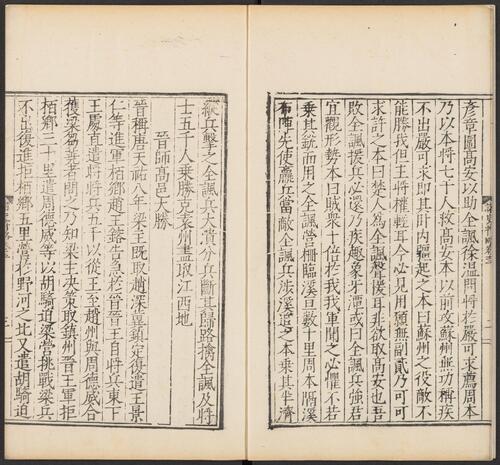 彥章圍高安以助全諷徐溫問將於嚴可求薦周本
乃以本將七千人救高安本以前攻蘇州無功稱疾
不出嚴可求即其臥內驅起之本曰蘇州之役敵不
能勝我但主將權輕耳今必見用願無副貳乃可可
求許之本曰楚人為全諷聲援耳非欲取高安也吾
敗全諷援兵必還乃疾趨象牙潭或曰全諷兵強君
宜觀形勢本曰賊衆十倍於我我軍聞之必懼不若
乘其銳而用之全諷營柵臨溪亘數十里周本隔溪
布陣先使羸兵當敵全諷兵涉溪追之本乘其半濟
縱兵擊之全諷兵大潰分兵斷其歸路擒全諷及將
士五千人乘勝克袁州盡取江西地
晉師高邑大勝
晉稱唐天祐八年梁主既取趙深冀鎮定復遣王景
仁等進軍柏鄉趙王鎔告急於晉晉王自將兵東下
王處直遣將將兵五千以從王至趙州與周德威合
獲梁芻蕘者問之乃知梁主決策取鎮州晉王軍距
柏鄉三十里遣周德威等以胡騎迫梁營挑戰梁兵
不出復進距柏鄉五里營於野河之北又遣胡騎迫